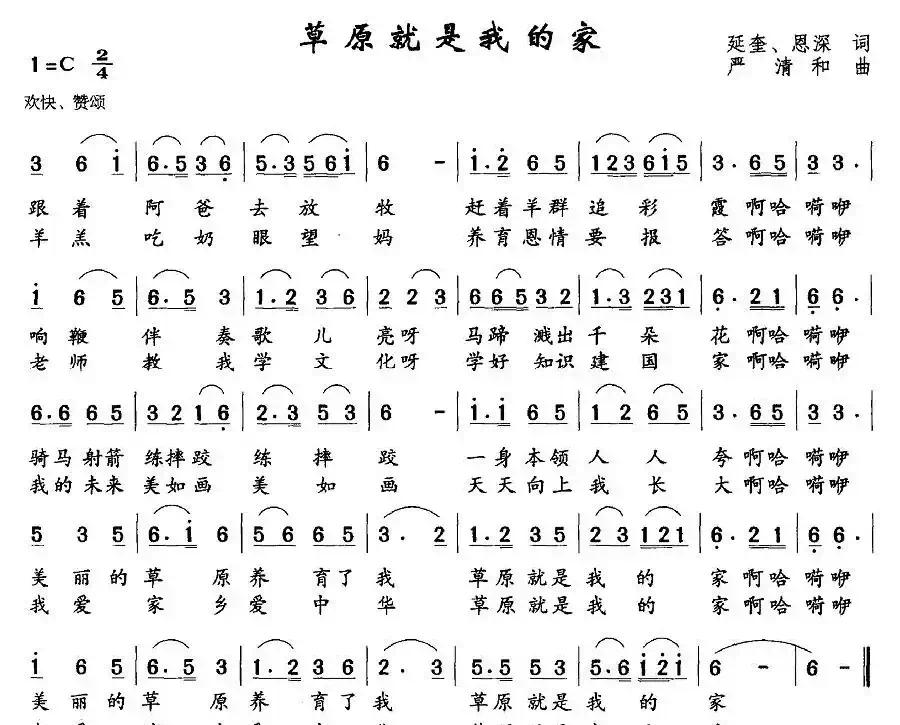 草原就是我的家
延奎、恩深 词
1=C 2/4
严 清 和 曲
欢快、赞颂
3 6 i | 6.5 3 6 | 5.3 5 6 i | 6 - | i.2 6 5 | 1 2 3 6 i 5 | 3. 6 5 | 3 3. |
跟着 阿爸去放牧 赶着羊群追彩霞啊哈嗬咿
羊羔 吃奶眼望妈 养育恩情要报答啊哈嗬咿
i 6 5 | 6.5 3 | 1.2 3 6 | 2 2 3 | 6 6 5 3 2 | 1.3 2 3 1 | 6. 2 1 | 6 6. |
响鞭伴奏歌儿亮呀 马蹄溅出千朵花啊哈嗬咿
老师教我学文化呀 学好知识建国家啊哈嗬咿
6.6 6 5 | 3 2 1 6 | 2.3 5 3 | 6 - | i.i 6 5 | 1 2 6 5 | 3. 6 5 | 3 3. |
骑马射箭练摔跤练摔跤 一身本领人人夸啊哈嗬咿
我的未来美如画美如画 天天向上我长大啊哈嗬咿
5 3 5 | 6. i 6 | 5 6 6 5 | 3. 2 | 1.2 3 5 | 2 3 1 2 1 | 6. 2 1 | 6 6. |
美丽的草原养育了我 草原就是我的家啊哈嗬咿
我爱家乡爱中华 草原就是我的家啊哈嗬咿
i 6 5 | 6.5 3 | 1.2 3 6 | 2. 3 | 5.5 5 3 | 5.6 i 2 i | 6 - | 6 - ||
美丽的草原养育了我 草原就是我的家